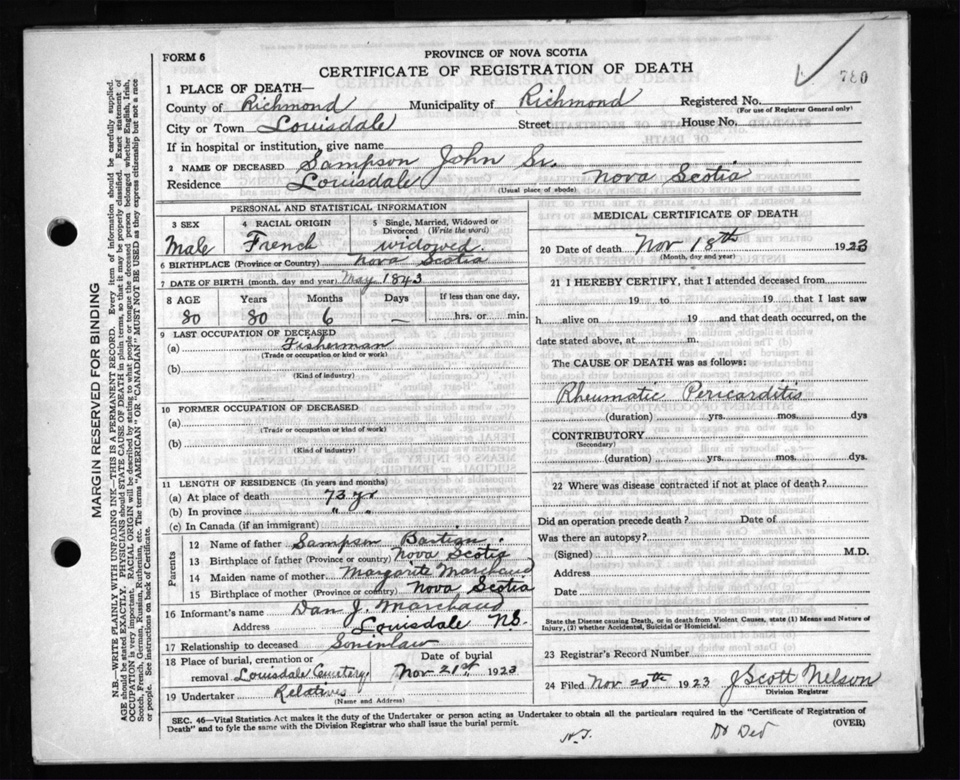 FORM 6
PROVINCE OF NOVA SCOTIA
CERTIFICATE OF REGISTRATION OF DEATH
780
1 PLACE OF DEATH—
County of Richmond Municipality of Richmond Registered No.
(For use of Registrar General only)
City or Town Louisdale Street House No.
If in hospital or institution, give name
2 NAME OF DECEASED Sampson John Sr.
Residence Louisdale Nova Scotia
(Usual place of abode)
PERSONAL AND STATISTICAL INFORMATION
3 SEX 4 RACIAL ORIGIN 5 Single, Married, Widowed or Divorced (Write the word)
Male French widowed.
6 BIRTHPLACE (Province or Country) Nova Scotia
7 DATE OF BIRTH (month, day and year) May 1843
8 AGE Years Months Days If less than one day,
80 80 6 — hrs. or min.
9 LAST OCCUPATION OF DECEASED
(a) Fisherman
(Trade or occupation or kind or work)
(b)
(Kind of industry)
10 FORMER OCCUPATION OF DECEASED
(a)
(Trade or occupation or kind of work)
(b)
(Kind of industry)
11 LENGTH OF RESIDENCE (In years and months)
(a) At place of death 73 yr
(b) In province " "
(c) In Canada (if an immigrant)
Parents
12 Name of father Sampson Bastian.
13 Birthplace of father (Province or country) Nova Scotia
14 Maiden name of mother Margarite Marchand
15 Birthplace of mother (Province or country) Nova Scotia
16 Informant's name Dan J. Marchand
Address Louisdale N.S.
17 Relationship to deceased Soninlaw
18 Place of burial, cremation or removal Louisdale Cemetery Date of burial Nov 21st, 1923
19 Undertaker Relatives
(Name and Address)
MEDICAL CERTIFICATE OF DEATH
20 Date of death Nov 18th 1923
(Month, day and year)
21 I HEREBY CERTIFY, that I attended deceased from
19 to 19 that I last saw
h alive on 19 and that death occurred, on the
date stated above, at m.
The CAUSE OF DEATH was as follows:
Rheumatic Pericarditis
(duration) yrs. mos. dys
CONTRIBUTORY
(Secondary)
(duration) yrs. mos. dys.
22 Where was disease contracted if not at place of death?
Did an operation precede death? Date of
Was there an autopsy?
(Signed) M.D.
Address
Date
State the Disease causing Death, or in death from Violent Causes, state (1) Means and Nature of Injury, (2) whether Accidental, Suicidal or Homicidal.
23 Registrar's Record Number
24 Filed Nov 20th 1923 J Scott Nelson
Division Registrar
SEC. 46—Vital Statistics Act makes it the duty of the Undertaker or person acting as Undertaker to obtain all the particulars required in the "Certificate of Registration of
Death" and to fyle the same with the Division Registrar who shall issue the burial permit. (OVER)
MARGIN RESERVED FOR BINDING
N.B.—WRITE PLAINLY WITH UNFADING INK—THIS IS A PERMANENT RECORD. Every item of information should be carefully supplied.
AGE should be stated EXACTLY. PHYSICIANS should STATE CAUSE OF DEATH in plain terms, so that it may be properly classified. Exact statement of
OCCUPATION is very important. RACIAL ORIGIN will be described by stating to what people or tongue the deceased person belonged whether English, Irish,
Scotch, French, German, Russian, Ruthenian, etc. The terms "AMERICAN" OR "CANADIAN" MUST NOT BE USED as they express citizenship but not a race
or people. See instructions on back of Certificate.